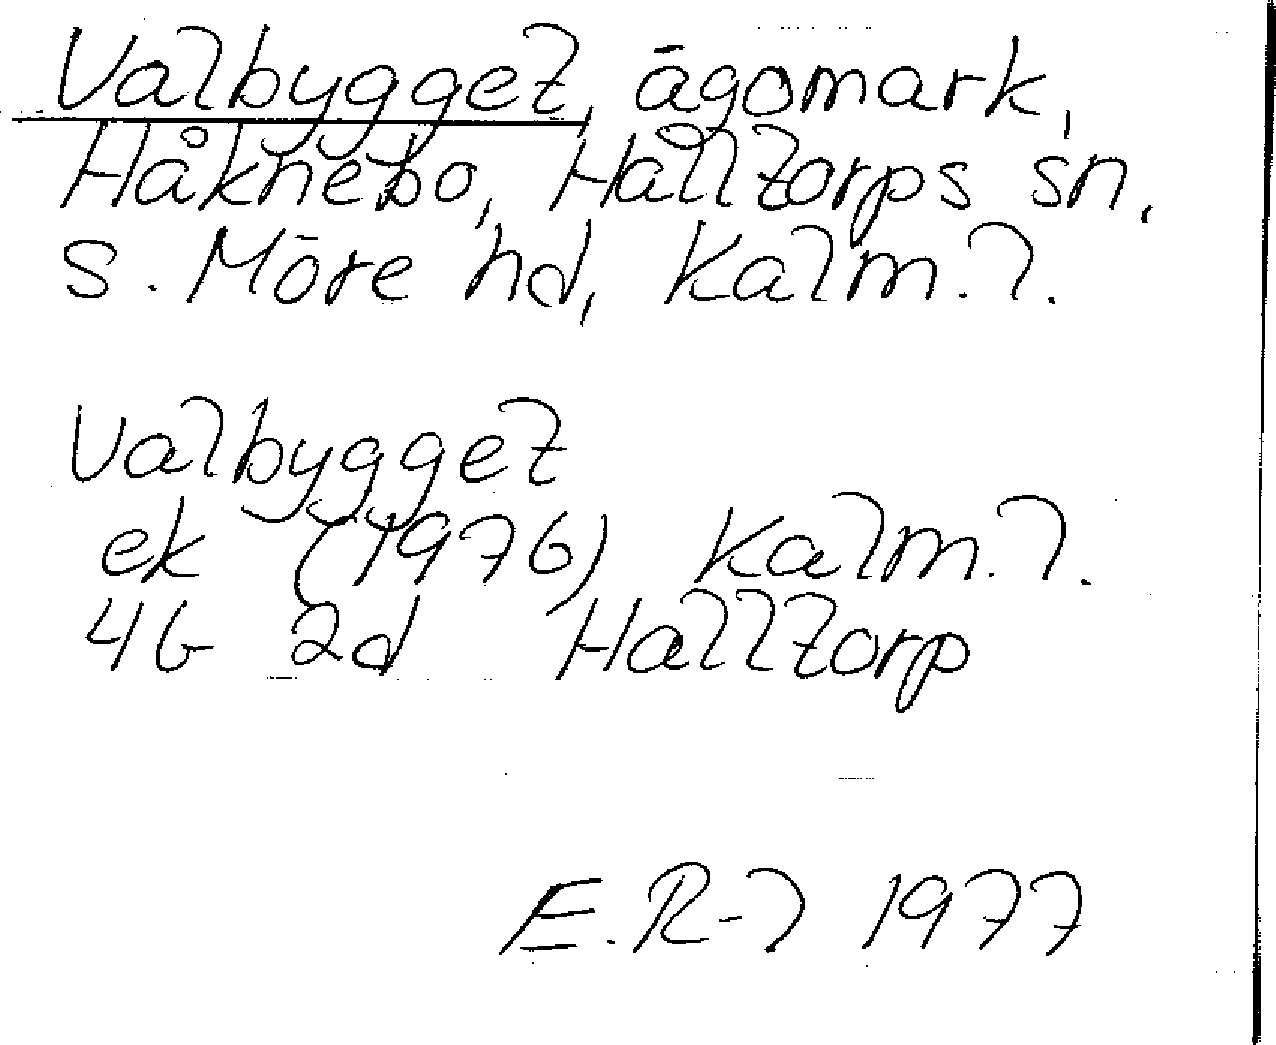 Valbygget, ägomark,
Håknebo, Halltorps sn,
S. Möre hd, Kalm. l.
Valbygget
ek (1976) Kalm. l.
4G 2d Halltorp
E. R-l 1977